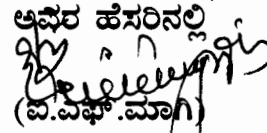 ಅವರ ಹೆಸರಿನಲ್ಲಿ
(ಐ.ಎಫ್.ಮಾಗಿ)